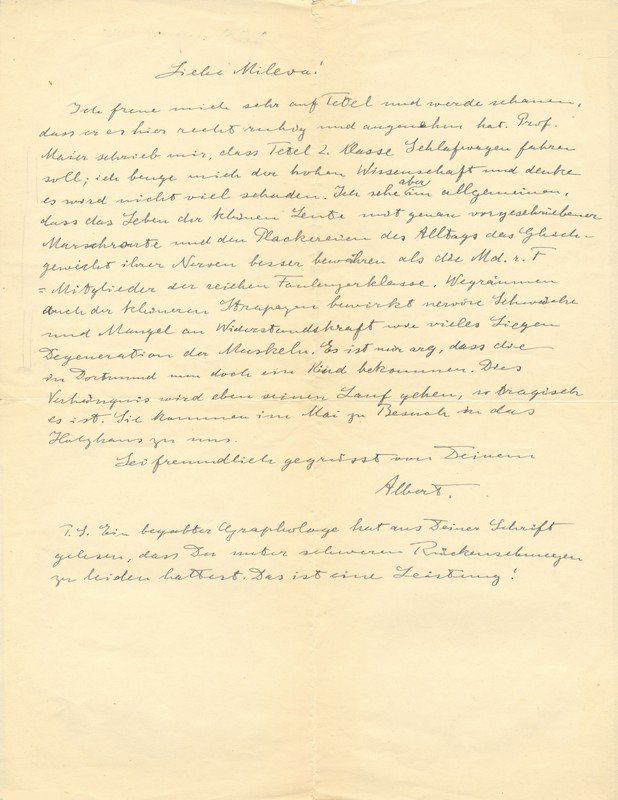 Liebe Mileva!
Ich freue mich sehr auf Tetel und werde schauen,
dass er es hier recht ruhig und angenehm hat. Prof.
Maier schrieb mir, dass Tetel 2. Klasse Schlafwagen fahren
soll; ich beuge mich der hohen Wissenschaft und denke
es wird nicht viel schaden. Ich sehe aber im allgemeinen,
dass das Leben der kleinen Leute mit genau vorgeschriebener
Marschroute und den Plackereien des Alltags das Gleich-
gewicht ihrer Nerven besser bewahren als die Md. r. F
= Mitglieder der reichen Faulenzerklasse. Wegräumen
auch der kleineren Strapazen bewirkt nervöse Schwäche
und Mangel an Widerstandskraft wie vieles Liegen
Degeneration der Muskeln. Es ist nur arg, dass die
in Dortmund nun doch ein Kind bekommen. Dies
Verhängnis wird eben seinen Lauf gehen, so tragisch
es ist. Sie kommen im Mai zu Besuch in das
Holzhaus zu uns.
Sei freundlich gegrüsst von Deinem
Albert.
P.S. Ein begabter Graphologe hat aus Deiner Schrift
gelesen, dass Du unter schweren Rückenschmerzen
zu leiden hattest. Das ist eine Leistung!